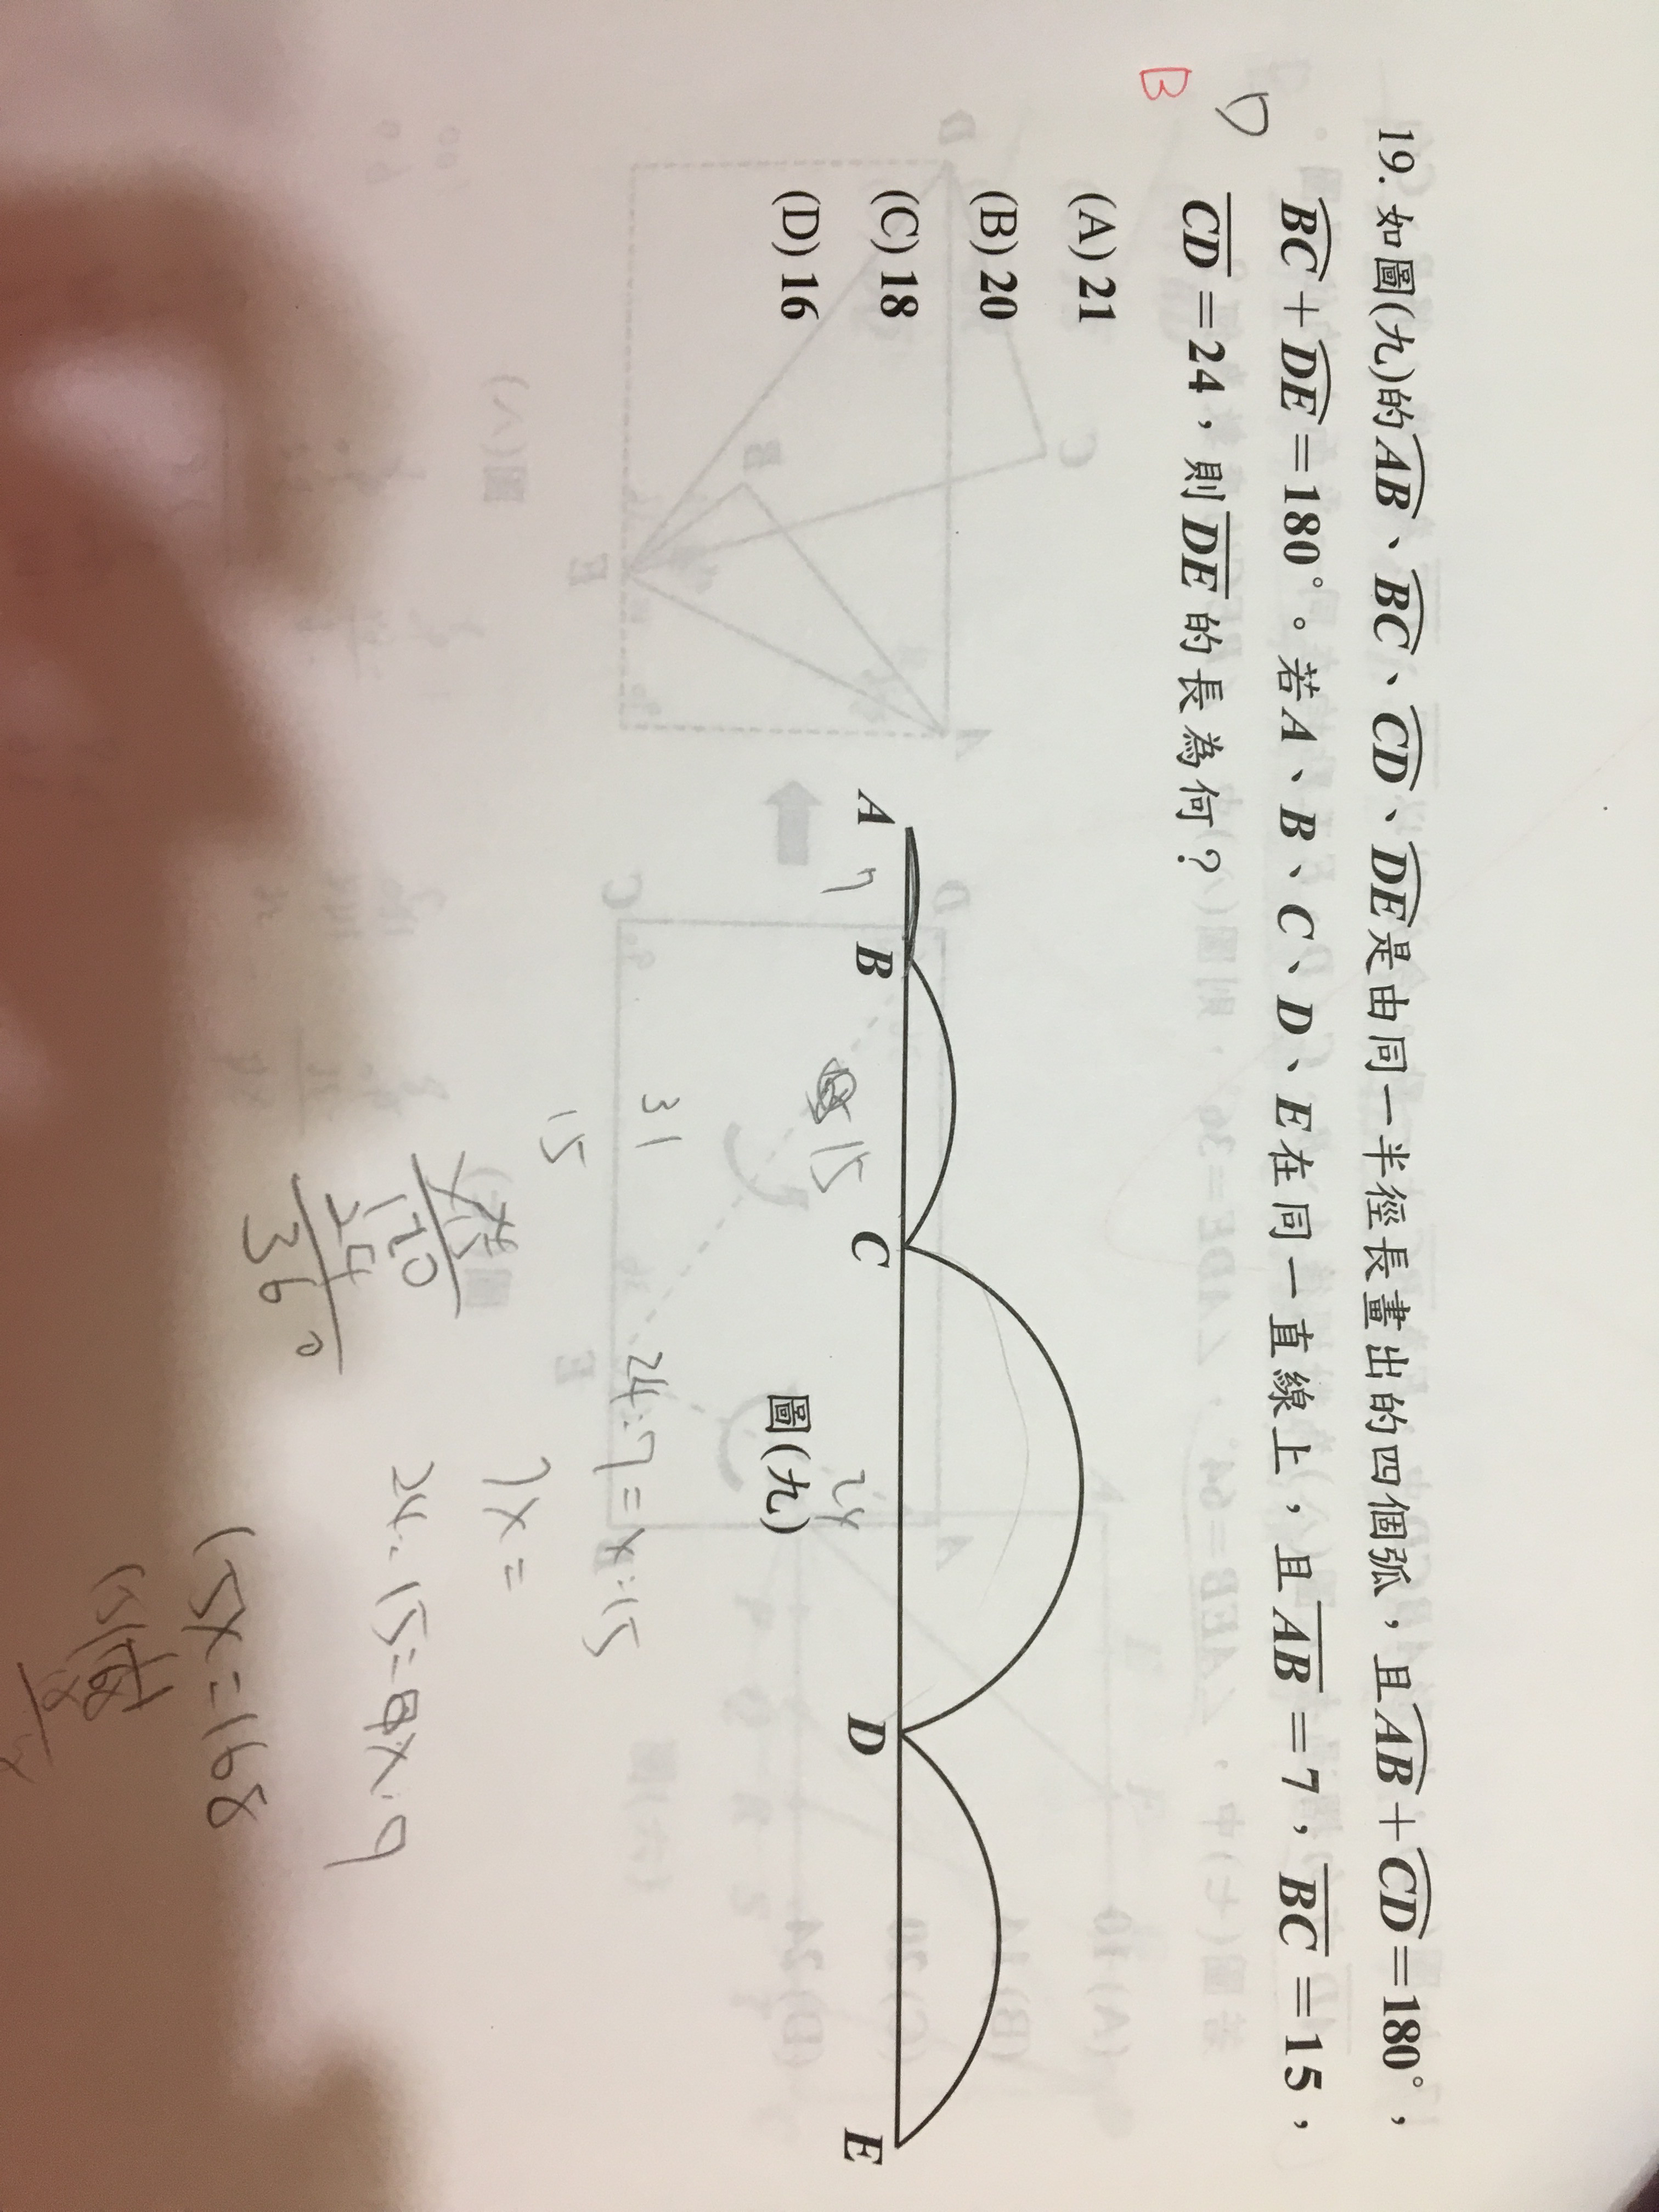 19. 如圖(九)的AB、BC、CD、DE是由同一半徑長畫出的四個弧，且AB+CD=180°，
BC+DE=180°。若A、B、C、D、E在同一直線上，且AB=7，BC=15，
CD=24，則DE的長為何？
D
B
(A) 21
(B) 20
(C) 18
(D) 16
A
B
C
D
E
7
15
24
圖(九)
31
15
24:7=x:15
7x=
120
24
360
15x=168